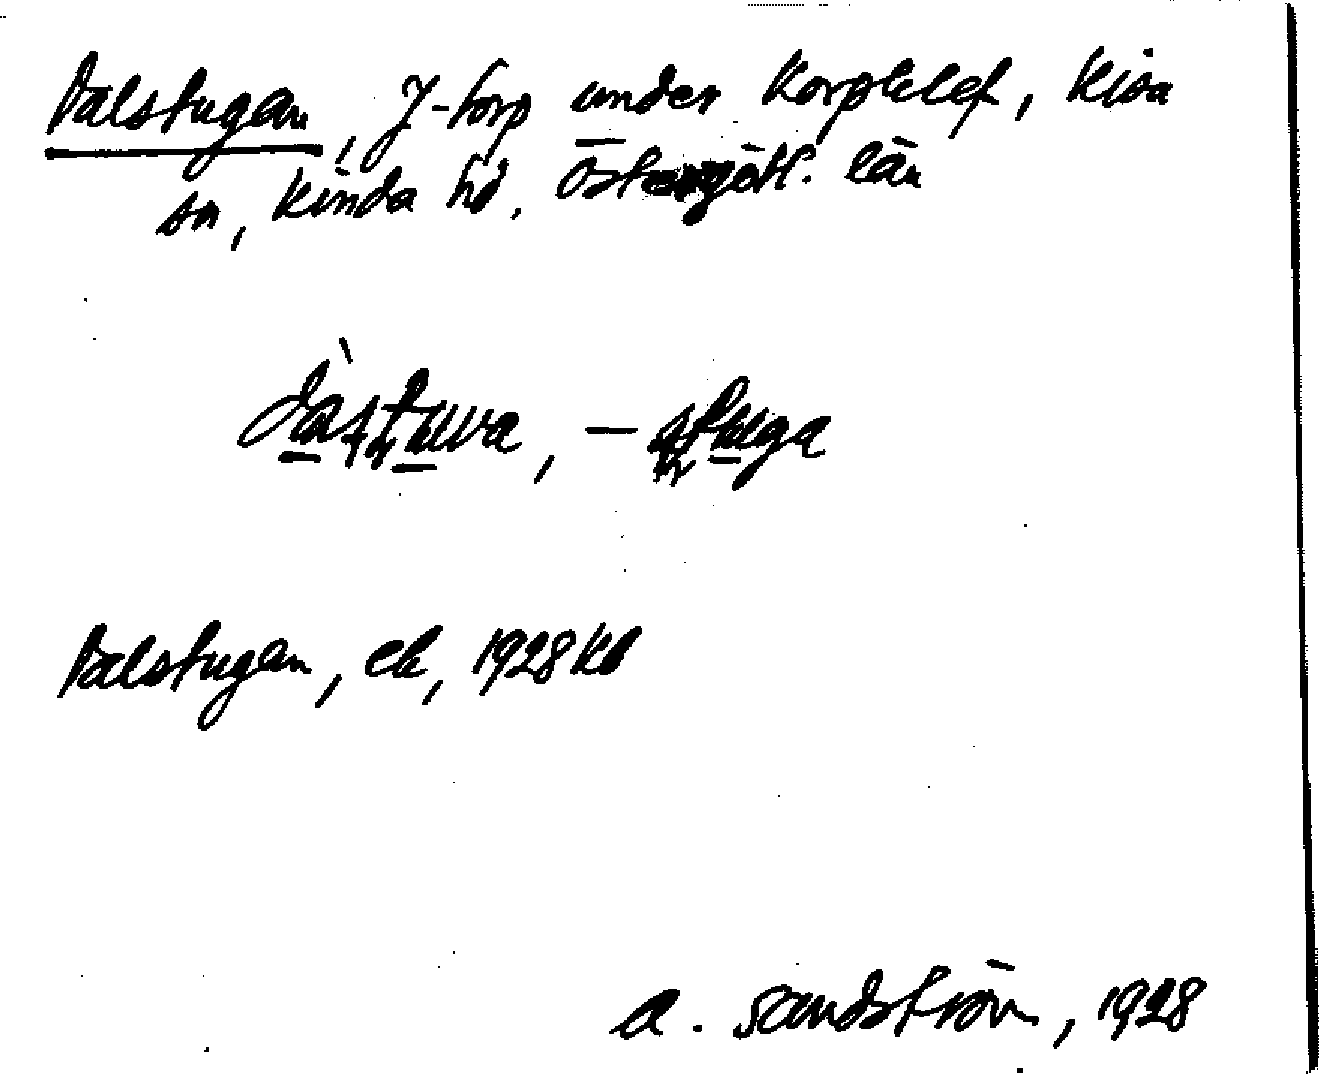 Dalstugan, J-torp under Korpklef, Kisa
sn, Kinda hd, Östergötl. län
Dalstugan, ek, 1928 Kb
A. Sandström, 1928